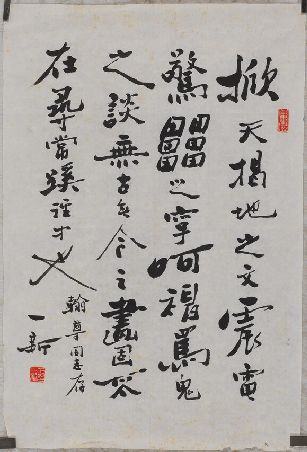 掀天揭地之文震電
驚雷之字呵神罵鬼
之談無古無今之畫固不
在尋常蹊徑中也
翰尊同志存
一新